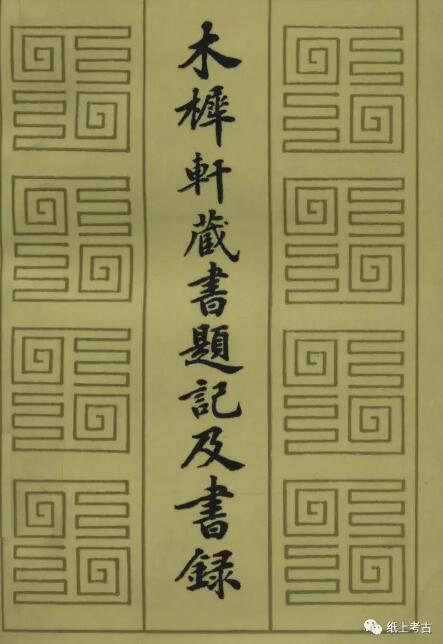 木樨軒藏書題記及書録
纸上考古